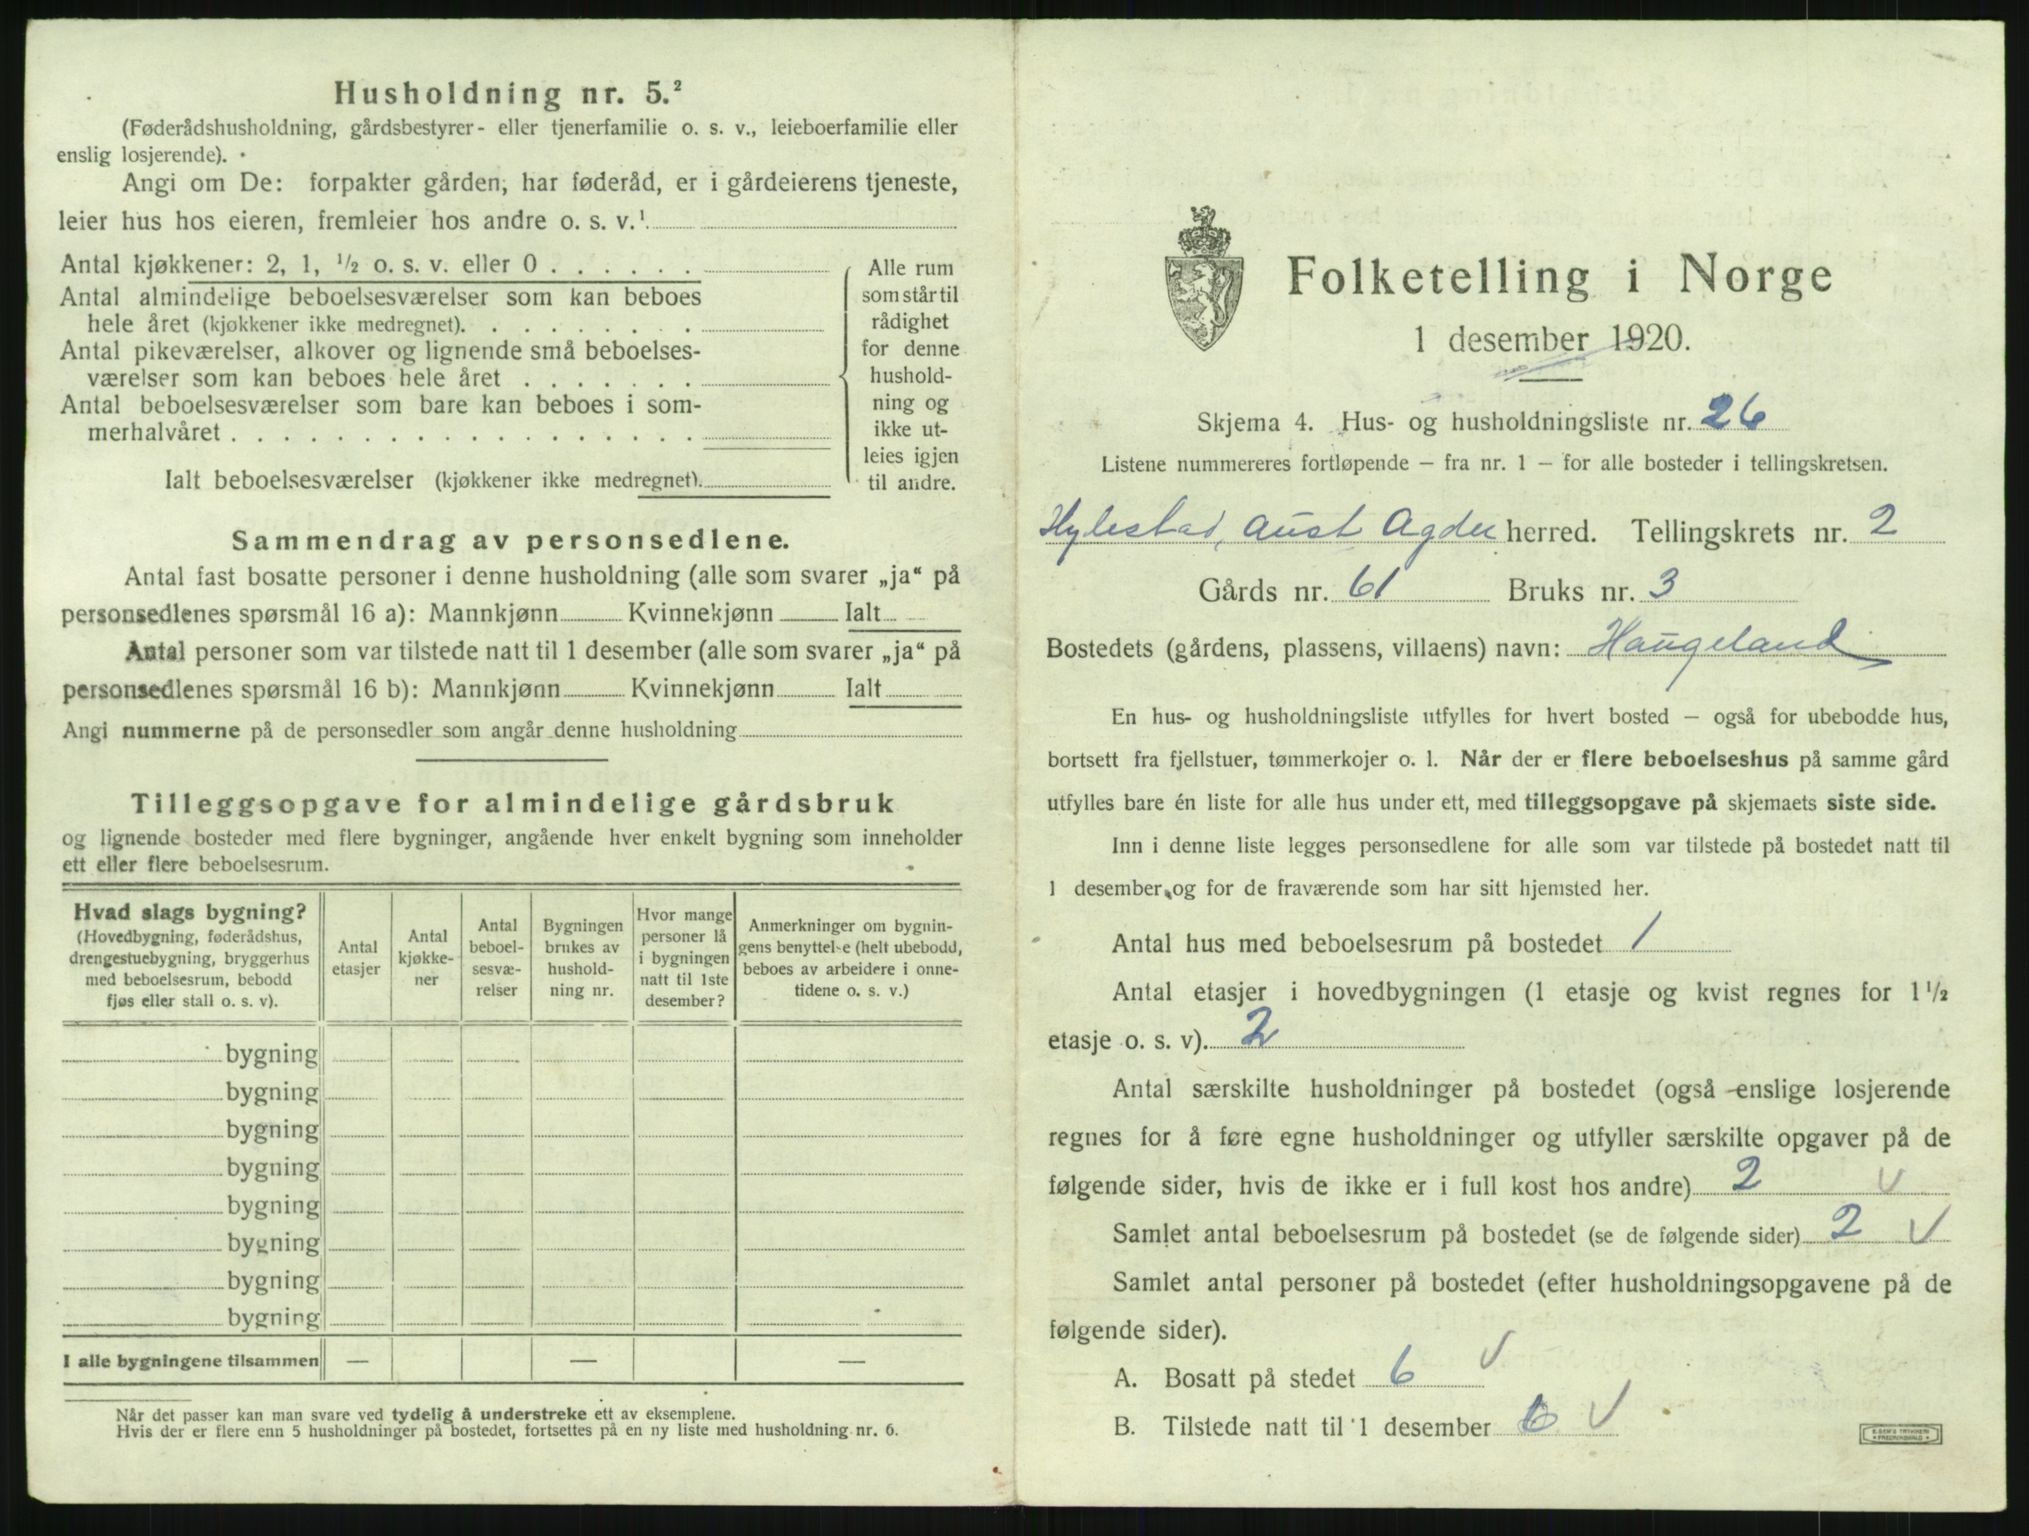 Husholdning nr. 5.²
(Føderådshusholdning, gårdsbestyrer- eller tjenerfamilie o. s. v., leieboerfamilie eller
enslig losjerende).
Angi om De: forpakter gården, har føderåd, er i gårdeierens tjeneste,
leier hus hos eieren, fremleier hos andre o. s. v.¹
Antal kjøkkener: 2, 1, ½ o. s. v. eller 0 . . . . . .
Antal almindelige beboelsesværelser som kan beboes
hele året (kjøkkener ikke medregnet). . . . . . . . .
Antal pikeværelser, alkover og lignende små beboelses-
værelser som kan beboes hele året . . . . . . .
Antal beboelsesværelser som bare kan beboes i som-
merhalvåret . . . . . . . . . . . . . . . . . .
Ialt beboelsesværelser (kjøkkener ikke medregnet).
Alle rum
som står til
rådighet
for denne
hushold-
ning og
ikke ut-
leies igjen
til andre.
Sammendrag av personsedlene.
Antal fast bosatte personer i denne husholdning (alle som svarer „ja“ på
personsedlenes spørsmål 16 a): Mannkjønn Kvinnekjønn Ialt
Antal personer som var tilstede natt til 1 desember (alle som svarer „ja“ på
personsedlenes spørsmål 16 b): Mannkjønn Kvinnekjønn Ialt
Angi nummerne på de personsedler som angår denne husholdning
Tilleggsopgave for almindelige gårdsbruk
og lignende bosteder med flere bygninger, angående hver enkelt bygning som inneholder
ett eller flere beboelsesrum.
Hvad slags bygning?
(Hovedbygning, føderådshus,
drengestuebygning, bryggerhus
med beboelsesrum, bebodd
fjøs eller stall o. s. v).
Antal
etasjer
Antal
kjøkke-
ner
Antal
beboel-
sesvæ-
relser
Bygningen
brukes av
hushold-
ning nr.
Hvor mange
personer lå
i bygningen
natt til 1ste
desember?
Anmerkninger om bygnin-
gens benyttelse (helt ubebodd,
beboes av arbeidere i onne-
tidene o. s. v.)
bygning
bygning
bygning
bygning
bygning
bygning
bygning
bygning
I alle bygningene tilsammen — — —
Når det passer kan man svare ved tydelig å understreke ett av eksemplene.
Hvis der er flere enn 5 husholdninger på bostedet, fortsettes på en ny liste med husholdning nr. 6.
Folketelling i Norge
1 desember 1920.
Skjema 4. Hus- og husholdningsliste nr. 26
Listene nummereres fortløpende — fra nr. 1 — for alle bosteder i tellingskretsen.
Hylestad, Aust Agder herred. Tellingskrets nr. 2
Gårds nr. 61 Bruks nr. 3
Bostedets (gårdens, plassens, villaens) navn: Haugeland
En hus- og husholdningsliste utfylles for hvert bosted — også for ubebodde hus,
bortsett fra fjellstuer, tømmerkojer o. l. Når der er flere beboelseshus på samme gård
utfylles bare én liste for alle hus under ett, med tilleggsopgave på skjemaets siste side.
Inn i denne liste legges personsedlene for alle som var tilstede på bostedet natt til
1 desember, og for de fraværende som har sitt hjemsted her.
Antal hus med beboelsesrum på bostedet 1
Antal etasjer i hovedbygningen (1 etasje og kvist regnes for 1½
etasje o. s. v). 2
Antal særskilte husholdninger på bostedet (også enslige losjerende
regnes for å føre egne husholdninger og utfyller særskilte opgaver på de
følgende sider, hvis de ikke er i full kost hos andre) 2 v
Samlet antal beboelsesrum på bostedet (se de følgende sider) 2 v
Samlet antal personer på bostedet (efter husholdningsopgavene på de
følgende sider).
A. Bosatt på stedet 6 v
B. Tilstede natt til 1 desember 6 v